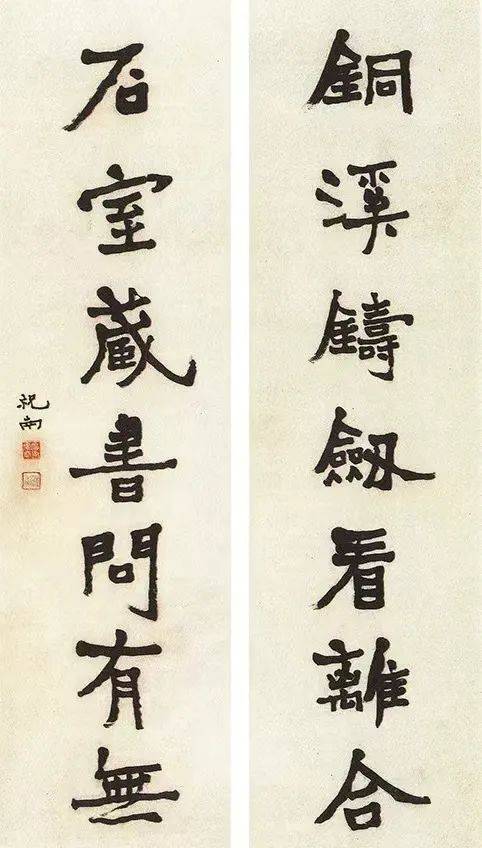 銅溪鑄劔看離合
石室蔵書問有無
祝南